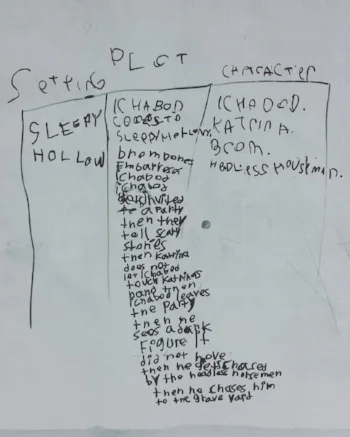 PLOT
Setting
CHARACTER
SLEEPY
HOLLOW
ICHABOD
COMES TO
SLEEPY HOLLOW
brom bones
Embarress
Ichabod
ichabod
invited
to a Party
then they
tell scary
stories
then Katrina
does not
let Ichabod
touch Katrinas
hand then
Ichabod leaves
the Party
then he
sees a dark
Figure It
did not move
then he gets chased
by the headless horsemen
then he chases him
to the grave yard
ICHABOD.
KATRINA.
BROM.